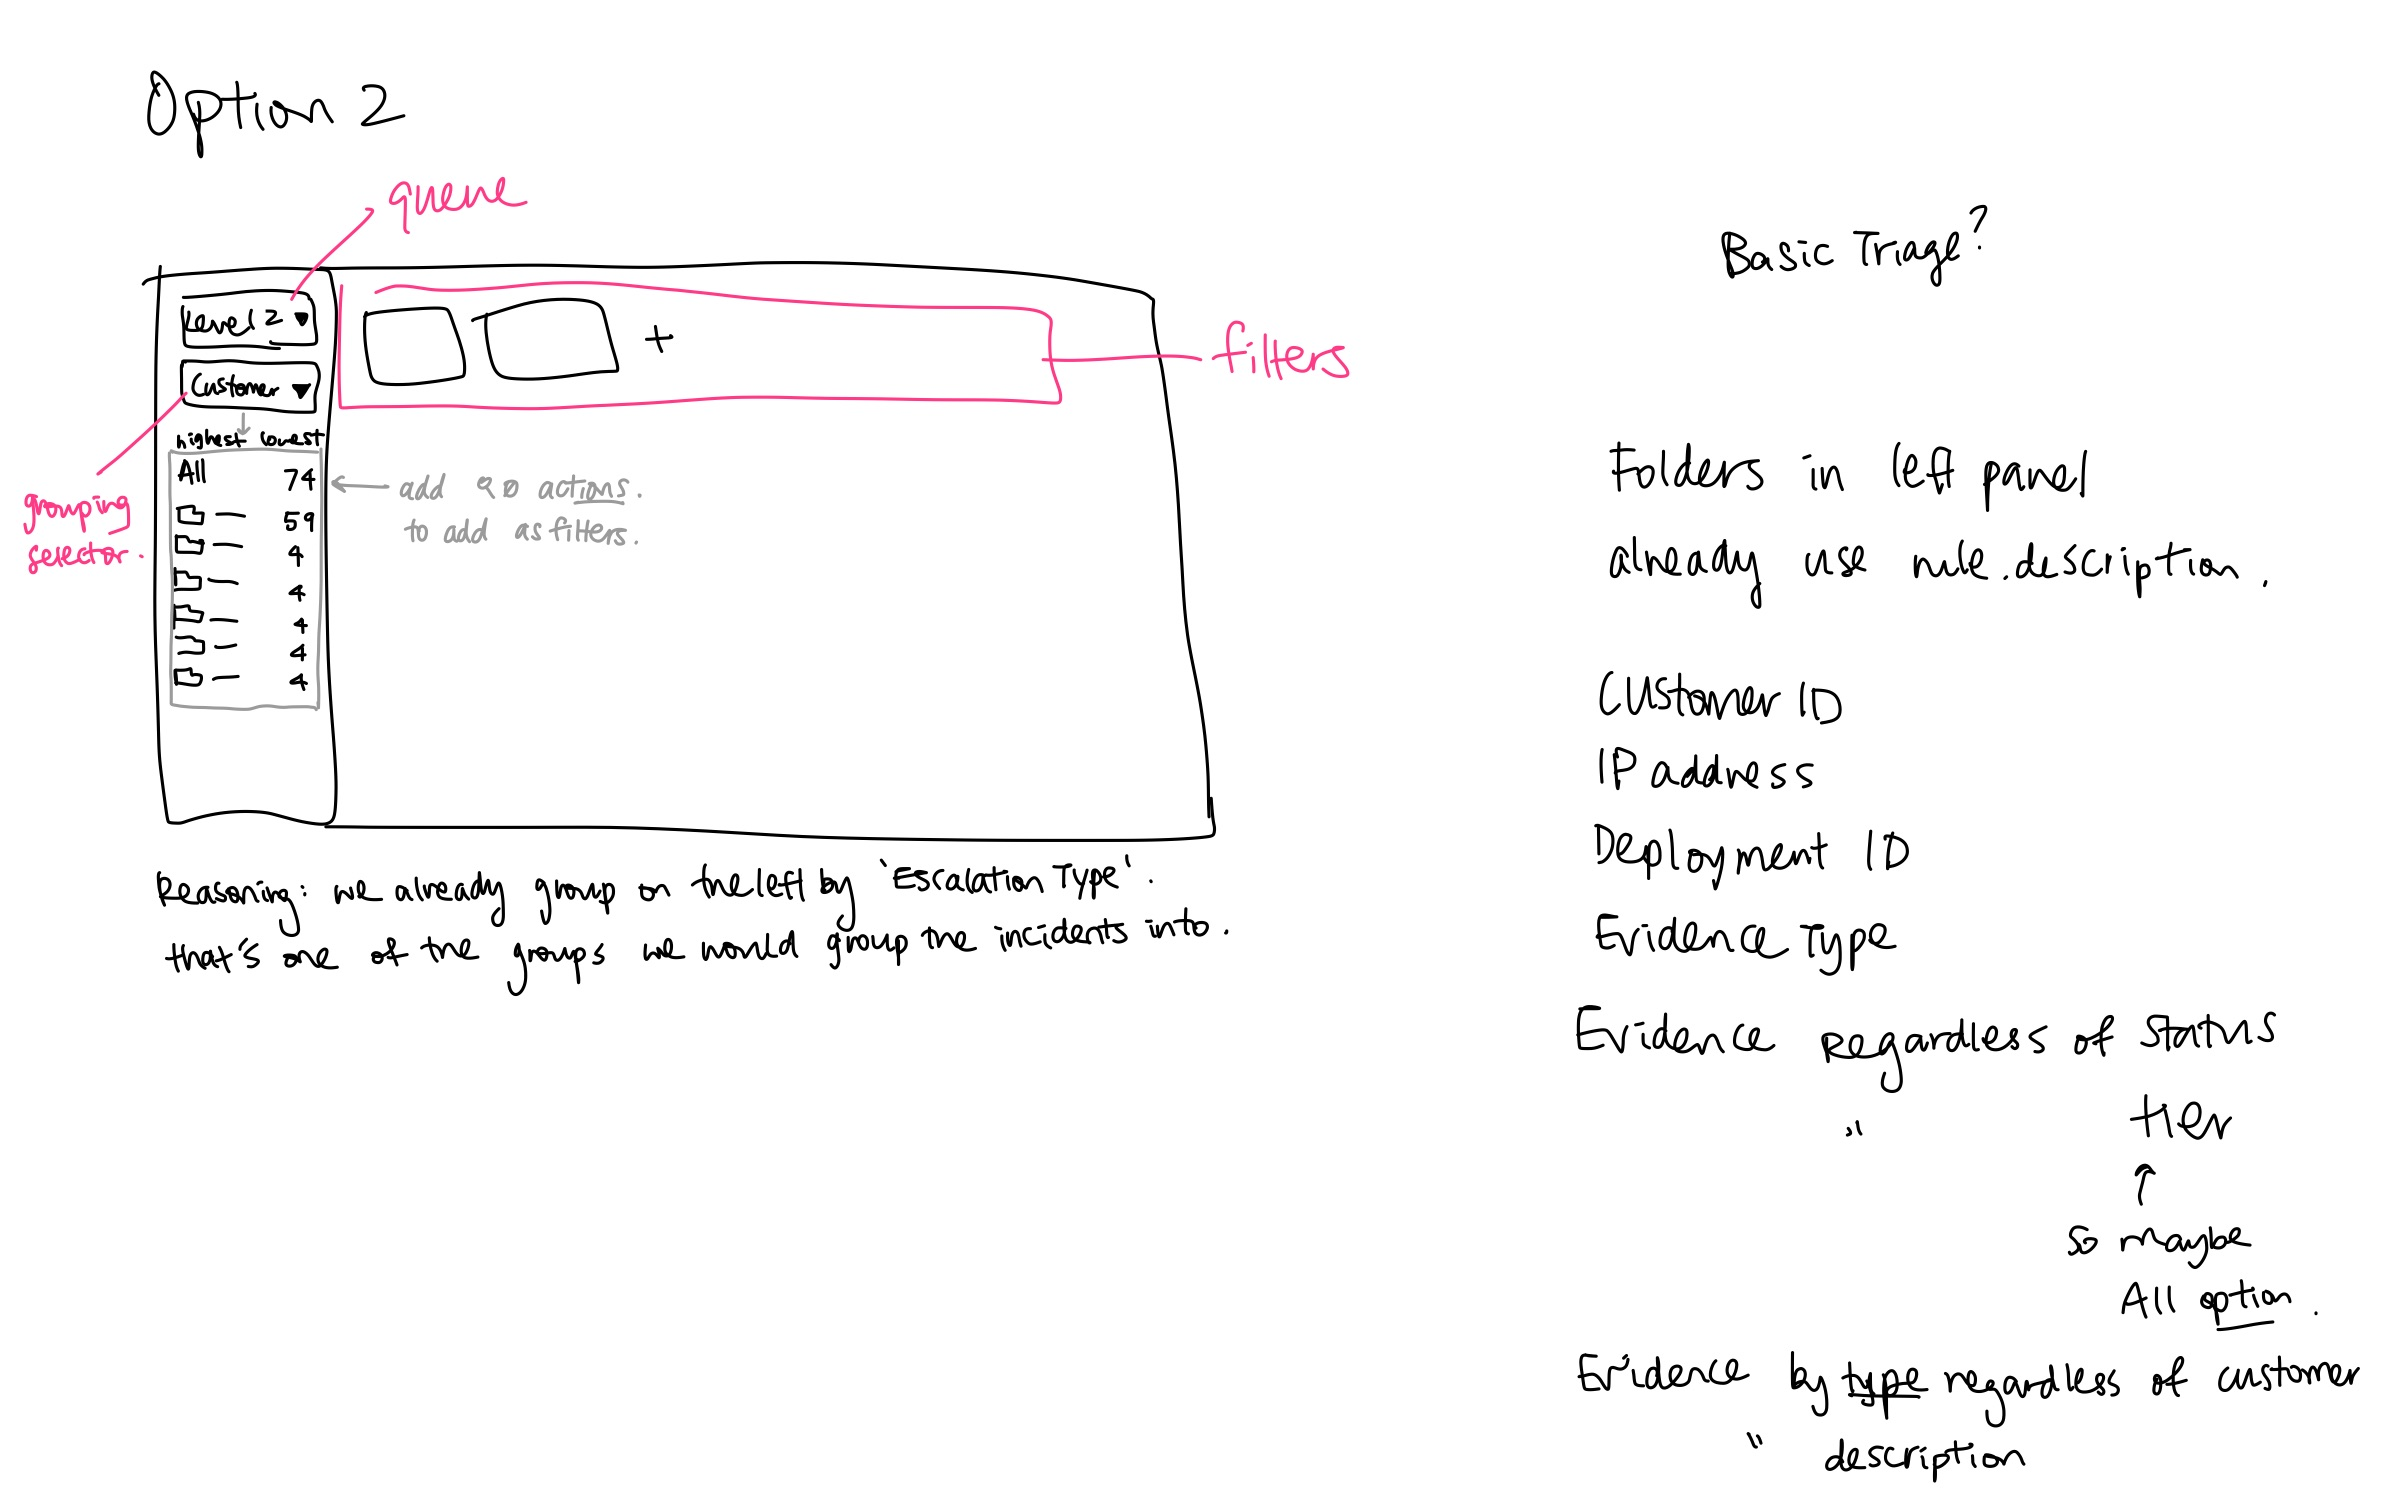 Option 2
queue
Level 2
Customer
highest lowest
All 74
59
4
4
4
4
4
grouping
selector.
+
filters
add & D actions.
to add as filters.
Reasoning: we already group on the left by 'Escalation Type'.
that's one of the groups we would group the incidents into.
Basic Triage?
Folders in left panel
already use rule.description.
Customer ID
IP address
Deployment ID
Evidence Type
Evidence Regardless of Status
" tier
so maybe
All option.
Evidence by type regardless of customer
" description